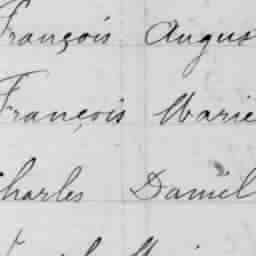 François Augus
François Marie
Charles Daniel